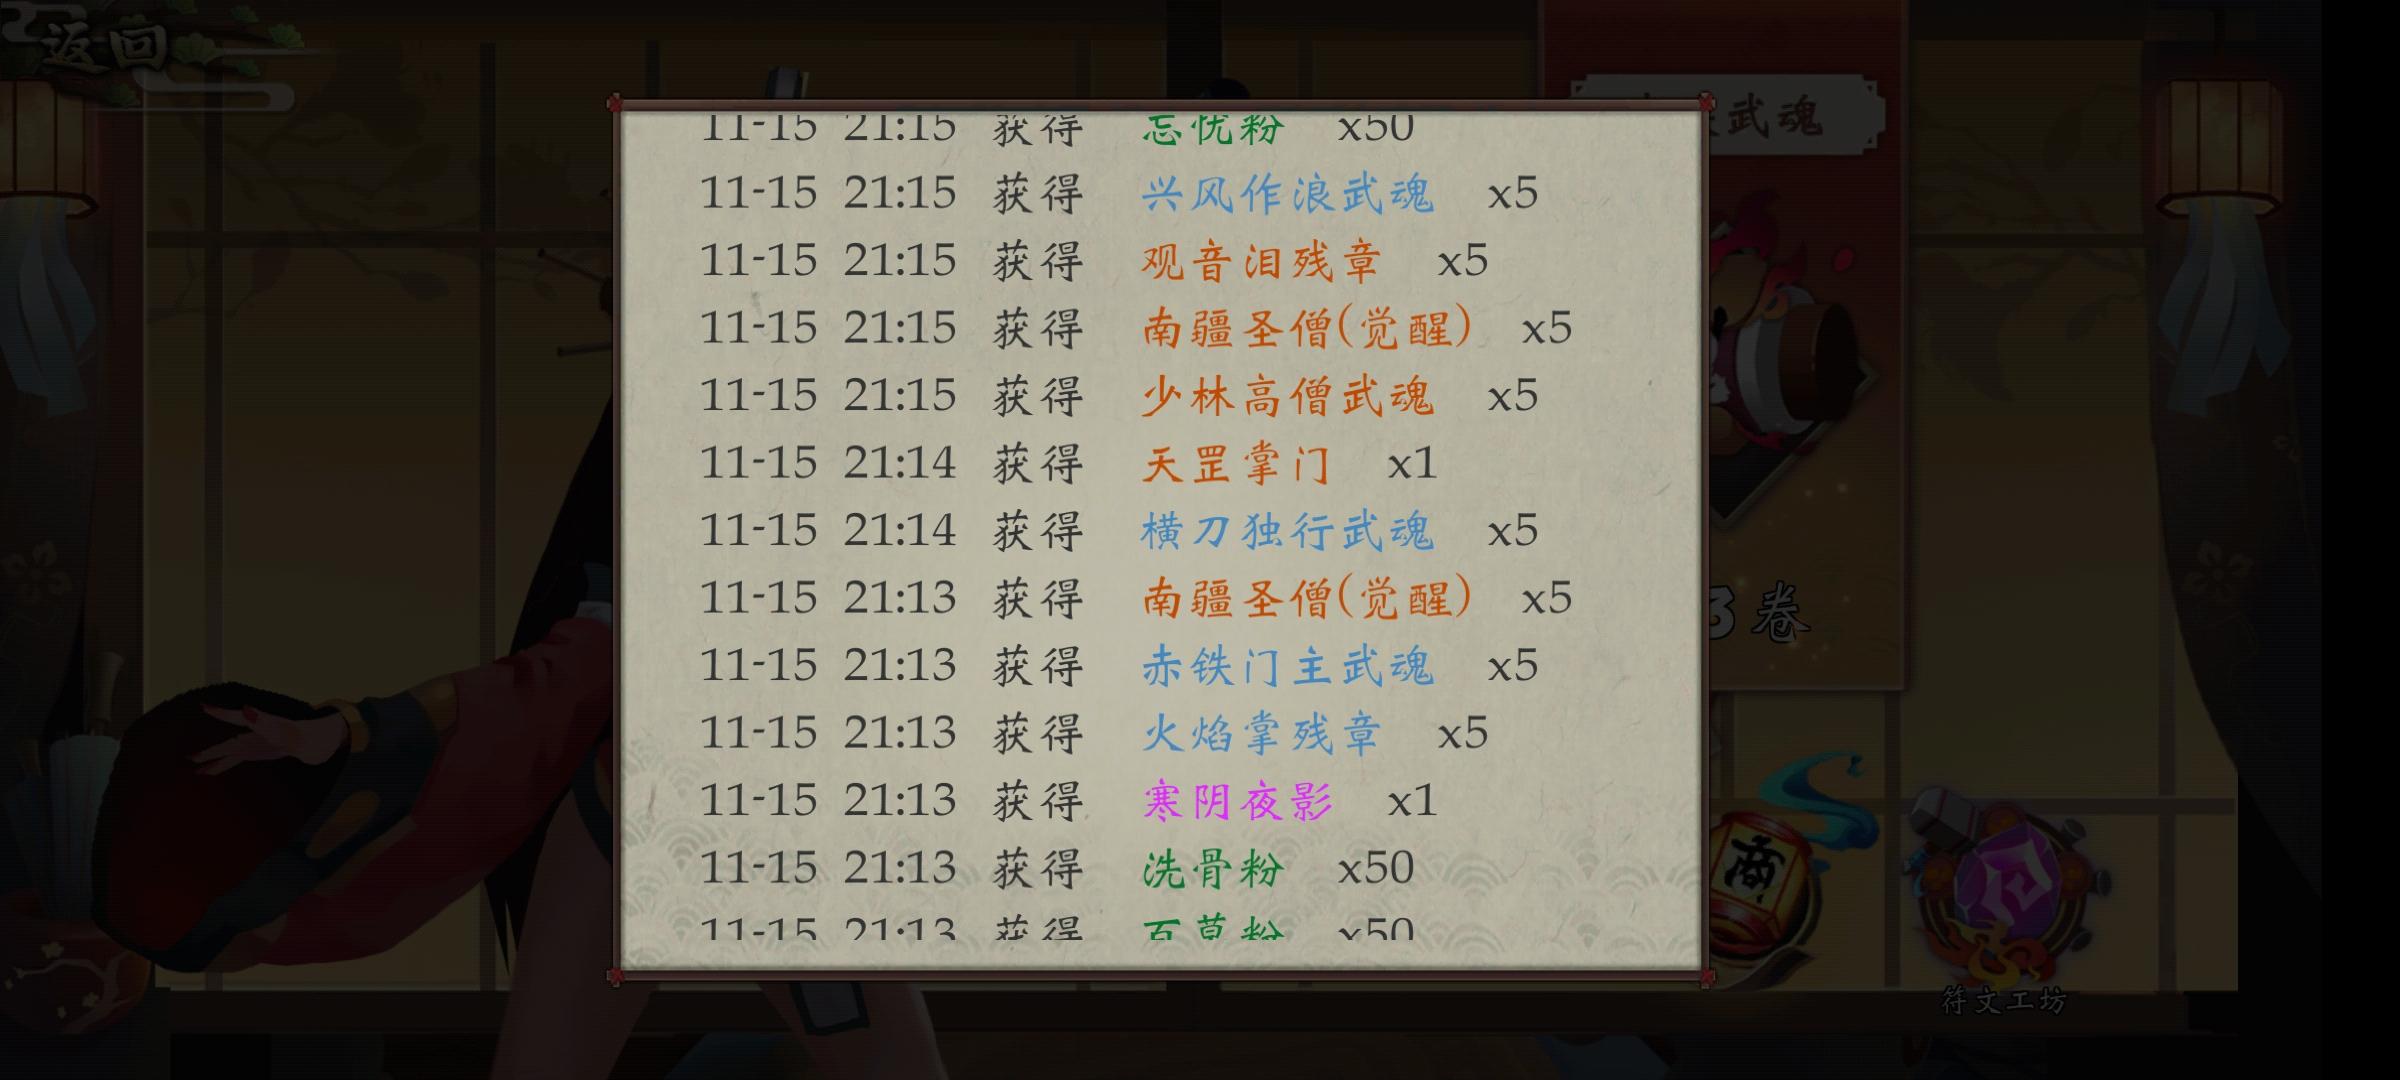 返回
武魂
11-15 21:15 获得 忘忧粉 x50
11-15 21:15 获得 兴风作浪武魂 x5
11-15 21:15 获得 观音泪残章 x5
11-15 21:15 获得 南疆圣僧(觉醒) x5
11-15 21:15 获得 少林高僧武魂 x5
11-15 21:14 获得 天罡掌门 x1
11-15 21:14 获得 横刀独行武魂 x5
11-15 21:13 获得 南疆圣僧(觉醒) x5
3卷
11-15 21:13 获得 赤铁门主武魂 x5
11-15 21:13 获得 火焰掌残章 x5
11-15 21:13 获得 寒阴夜影 x1
11-15 21:13 获得 洗骨粉 x50
商
11-15 21:13 获得 百草粉 x50
符文工坊